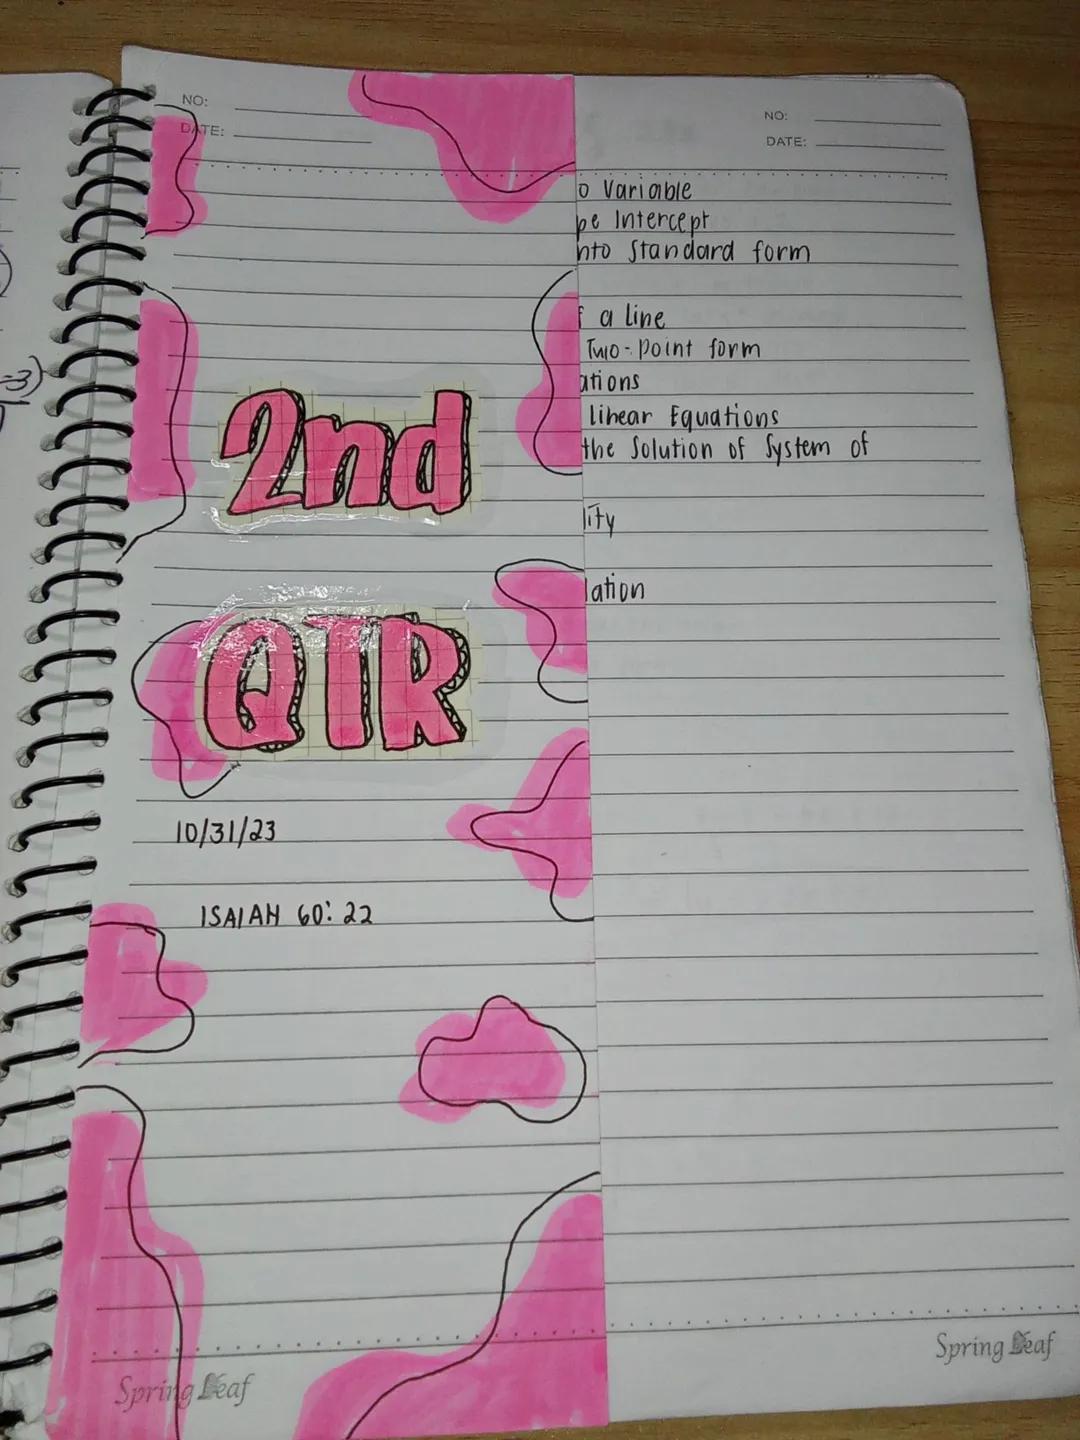 NO:
DATE:
2nd
QTR
10/31/23
ISAIAH 60:22
Spring Leaf
NO:
DATE:
o Variable
pe Intercept
nto Standard form
a line
Two-Point form
ations
linear Equations
the Solution of System of
lity
lation
Spring Leaf